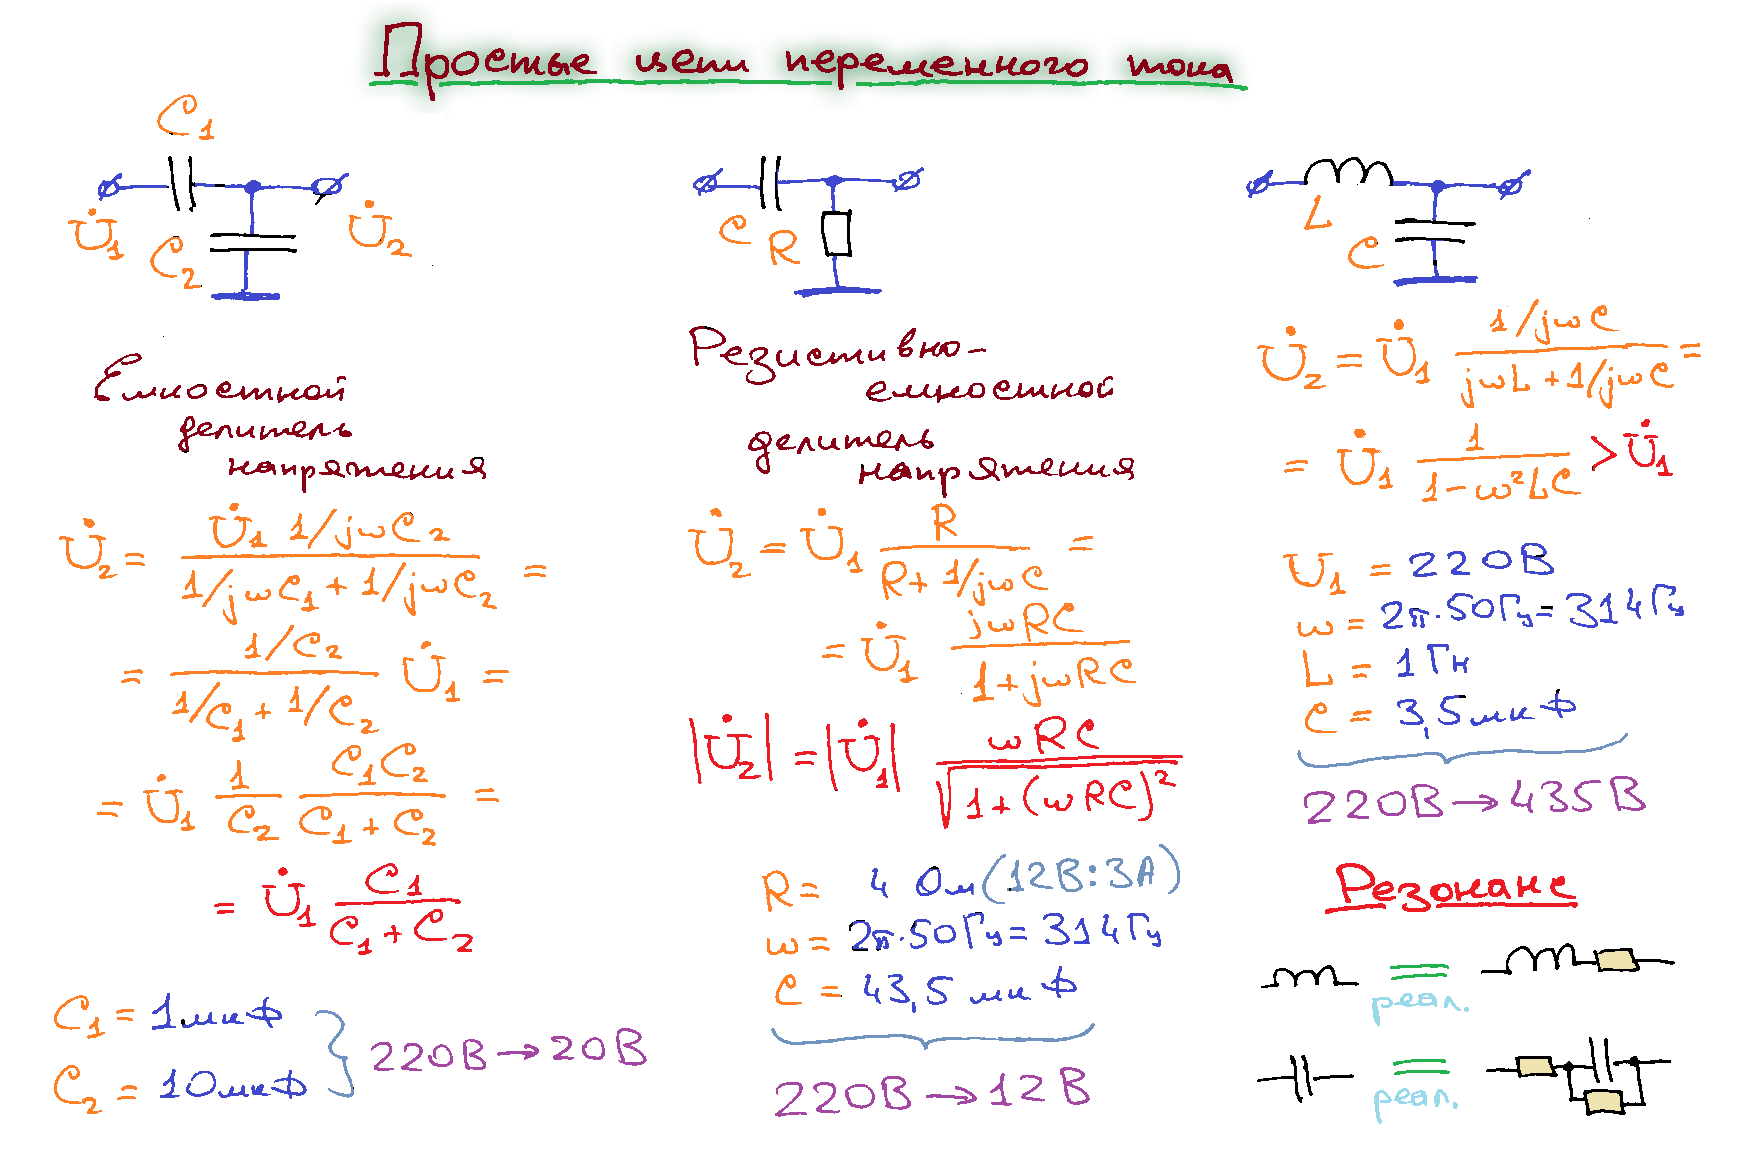 Простые цепи переменного тока
C₁
U̇₁
C₂
U̇₂
Емкостной
делитель
напряжения
U̇₂ = U̇₁ 1/jωC₂ / (1/jωC₁ + 1/jωC₂) =
= (1/C₂) / (1/C₁ + 1/C₂) U̇₁ =
= U̇₁ 1/C₂ C₁C₂/(C₁ + C₂) =
= U̇₁ C₁/(C₁ + C₂)
C₁ = 1мкФ
C₂ = 10мкФ
220В → 20В
C
R
Резистивно-
емкостной
делитель
напряжения
U̇₂ = U̇₁ R/(R + 1/jωC) =
= U̇₁ jωRC/(1 + jωRC)
|U̇₂| = |U̇₁| ωRC/√(1 + (ωRC)²)
R = 4 Ом (12В:3А)
ω = 2π·50Гц = 314Гц
C = 43,5 мкФ
220В → 12В
L
C
U̇₂ = U̇₁ (1/jωC)/(jωL + 1/jωC) =
= U̇₁ 1/(1 - ω²LC) > U̇₁
U₁ = 220В
ω = 2π·50Гц = 314Гц
L = 1Гн
C = 3,5мкФ
220В → 435В
Резонанс
реал.
реал.